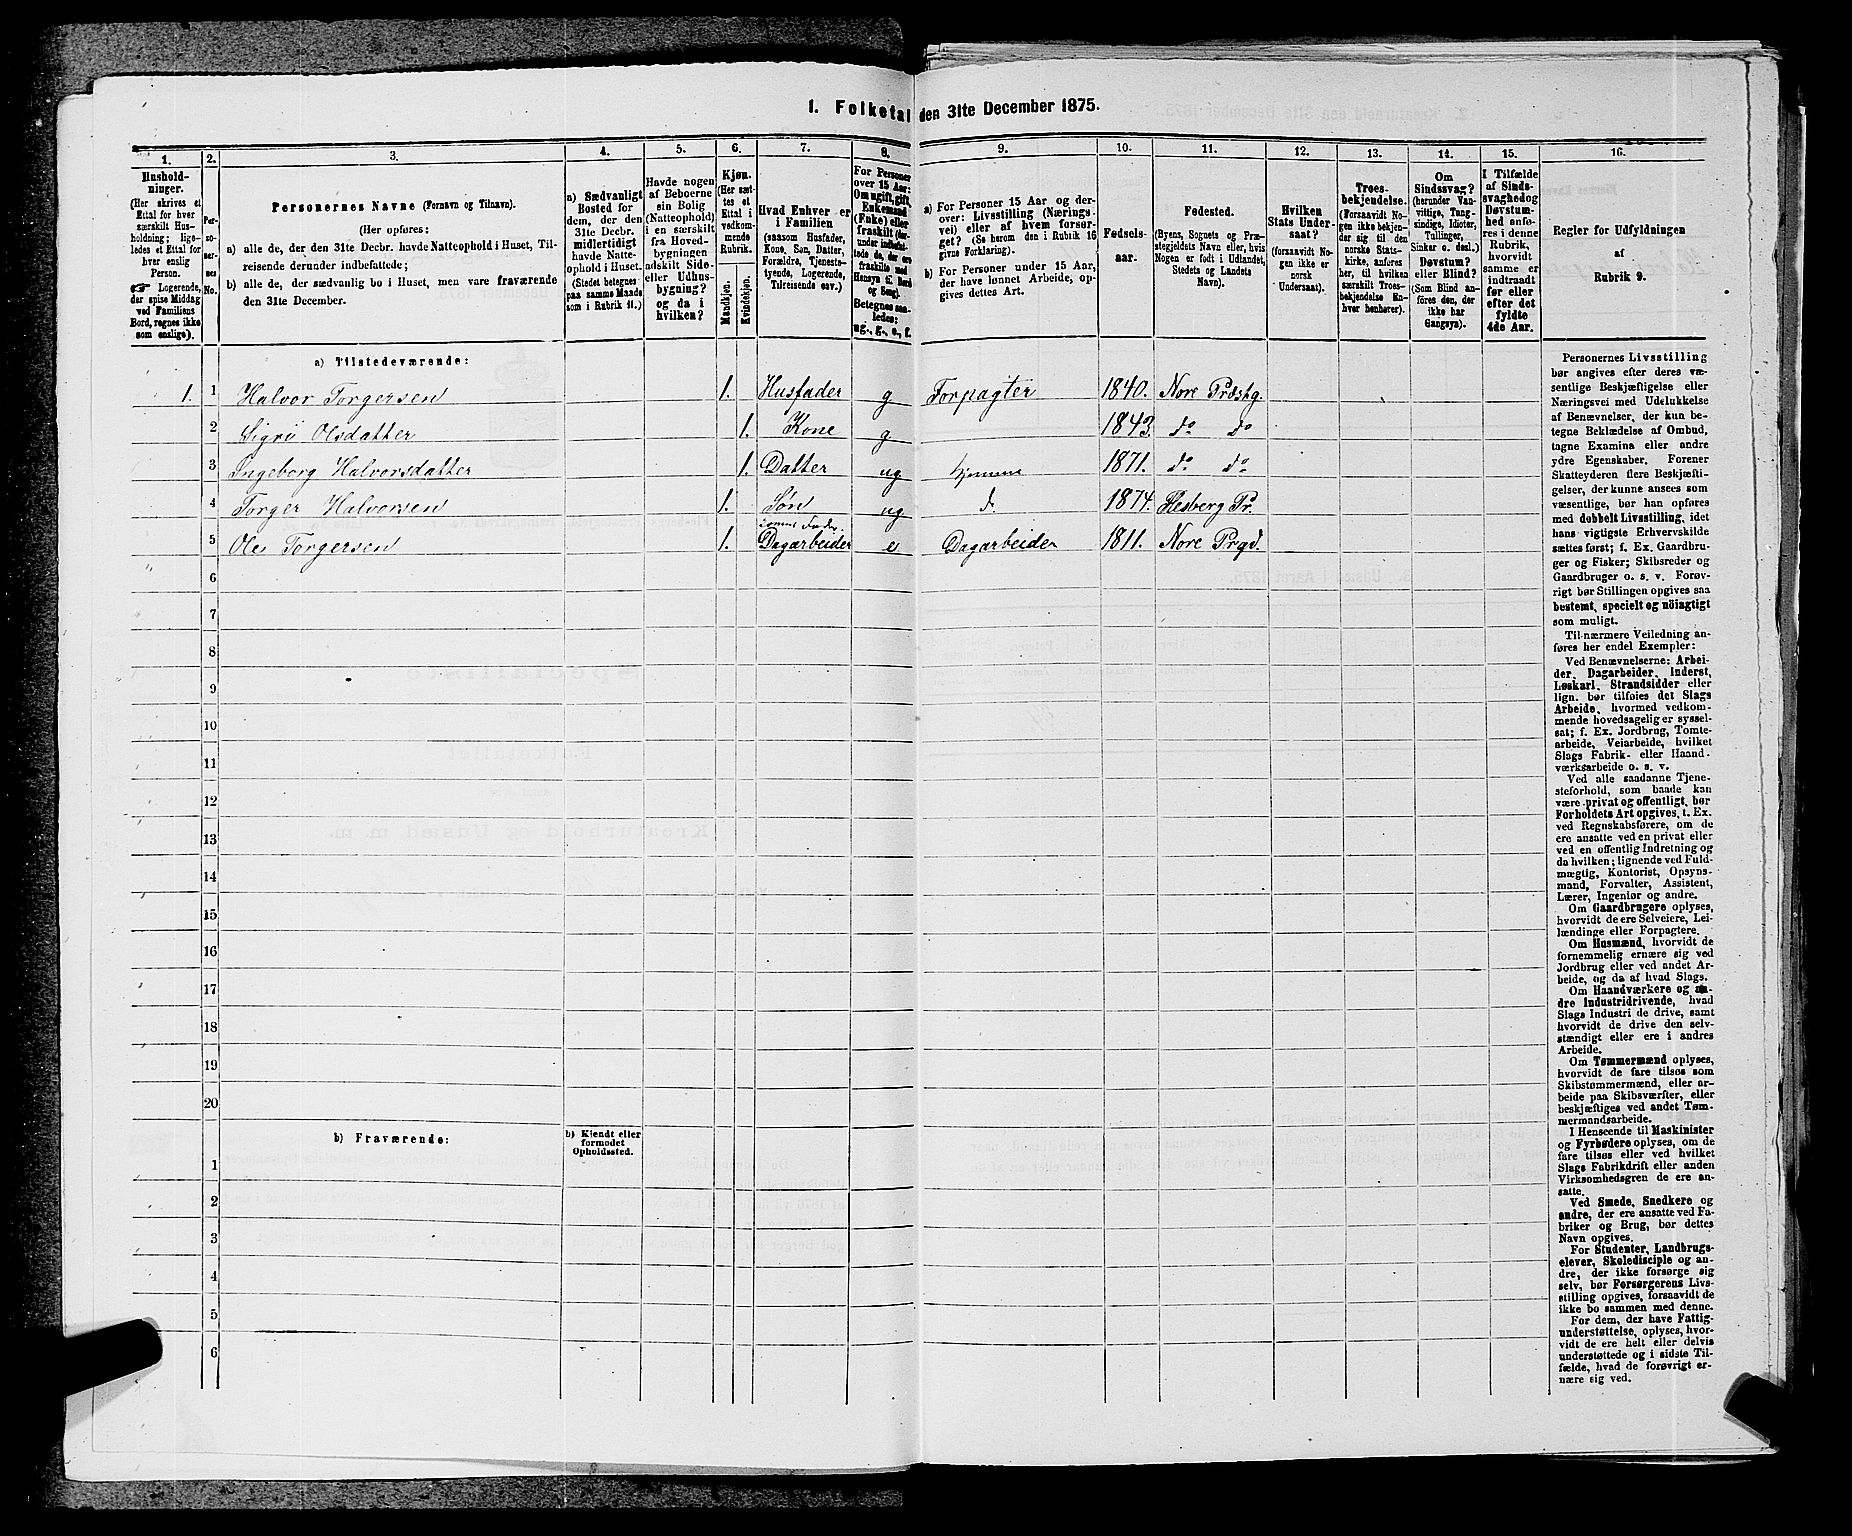 1. Folketal den 31te December 1875.
1. 2. 3. 4. 5. 6. 7. 8. 9. 10. 11. 12. 13. 14. 15. 16.
Hushold-
ninger.
(Her skrives et
Ettal for hver
særskilt Hus-
holdning; lige-
ledes et Ettal for
hver enslig
Person.
☞ Logerende,
der spise Middag
ved Familiens
Bord, regnes ikke
som enslige).
Per-
so-
ner-
nes
No.
Personernes Navne (Fornavn og Tilnavn).
(Her opføres:
a) alle de, der den 31te Decbr. havde Natteophold i Huset, Til-
reisende derunder indbefattede;
b) alle de, der sædvanlig bo i Huset, men vare fraværende
den 31te December.
a) Sædvanligt
Bosted for
dem, der den
31te Decbr.
midlertidigt
havde Natte-
ophold i Huset.
(Stedet betegnes
paa samme Maade
som i Rubrik 11.)
Havde nogen
af Beboerne
sin Bolig
(Natteophold)
i en særskilt
fra Hoved-
bygningen
adskilt Side-
eller Udhus-
bygning?
og da i
hvilken?
Kjøn.
(Her sæt-
tes et
Ettal i
vedkom-
mende
Rubrik.
Mandkjøn.
Kvindekjøn.
Hvad Enhver er
i Familien
(saasom Husfader,
Kone, Søn, Datter,
Forældre, Tjeneste-
tyende, Logerende,
Tilreisende osv.)
For Personer
over 15 Aar:
Om ugift, gift,
Enkemand
(Enke) eller
fraskilt (der-
under indbefat-
tede de, der ere
fraskilte med
Hensyn til Bord
og Seng).
Betegnes saa-
ledes:
ug., g., e., f.
a) For Personer 15 Aar og der-
over: Livsstilling (Nærings-
vei) eller af hvem forsør-
get? (Se herom den i Rubrik 16
givne Forklaring).
b) For Personer under 15 Aar,
der have lønnet Arbeide, op-
gives dettes Art.
Fødsels-
aar.
Fødested.
(Byens, Sognets og Præ-
stegjeldets Navn eller, hvis
Nogen er født i Udlandet,
Stedets og Landets
Navn).
Hvilken
Stats Under-
saat?
(forsaavidt No-
gen ikke er
norsk
Undersaat).
Troes-
bekjendelse.
(Forsaavidt No-
gen ikke bekjen-
der sig til den
norske Stats-
kirke, anføres
her, til hvilken
særskilt Troes-
bekjendelse En-
hver henhører).
Om
Sindssvag?
(herunder Van-
vittige, Tung-
sindige, Idioter,
Tullinger,
Sinker o. desl.)
Døvstum?
eller Blind?
(Som Blind an-
føres den, der
ikke har
Gangsyn).
I Tilfælde
af Sinds-
svaghed og
Døvstum-
hed anfø-
res i denne
Rubrik,
hvorvidt
samme er
indtraadt
før eller
efter det
fyldte
4de Aar.
Regler for Udfyldningen
af
Rubrik 9.
a) Tilstedeværende:
1. 1 Halvor Torgersen 1. Husfader g Forpagter 1840. Nore Præstg.
2 Sigri Olsdatter 1. Kone g 1843. do do
3 Ingeborg Halvorsdatter 1. Datter ug hjemme 1871. do do
4 Torger Halvorsen 1. Søn ug d. 1874. Flesberg Pr.
5 Ole Torgersen 1. Dagarbeider e Dagarbeider 1811. Nore Prgd.
6
7
8
9
10
11
12
13
14
15
16
17
18
19
20
b) Fraværende:
b) Kjendt eller
formodet
Opholdssted.
1
2
3
4
5
6
Personernes Livsstilling
bør angives efter deres væ-
sentlige Beskjæftigelse eller
Næringsvei med Udelukkelse
af Benævnelser, der kun be-
tegne Beklædelse af Ombud,
tagne Examina eller andre
ydre Egenskaber. Forener
Skatteyderen flere Beskjæfti-
gelser, der kunne ansees som
væsentlige, bør han opføres
med dobbelt Livsstilling, idet
hans vigtigste Erhvervskilde
sættes først; f. Ex. Gaardbru-
ger og Fisker; Skibsreder og
Gaardbruger o. s. v. Forøv-
rigt bør Stillingen opgives saa
bestemt, specielt og nöiagtigt
som muligt.
Til nærmere Veiledning an-
føres her endel Exempler:
Ved Benævnelserne: Arbei-
der, Dagarbeider, Inderst,
Løskarl, Strandsidder eller
lign. bør tilføies det Slags
Arbeide, hvormed vedkom-
mende hovedsagelig er syssel-
sat; f. Ex. Jordbrug, Tomte-
arbeide, Veiarbeide, hvilket
Slags Fabrik- eller Haand-
værksarbeide o. s. v.
Ved alle saadanne Tjene-
steforhold, som baade kan
være privat og offentligt, bør
Forholdets Art opgives, t. Ex.
ved Regnskabsførere, om de
ere ansatte ved en privat eller
ved en offentlig Indretning og
da hvilken; lignende ved Fuld-
mægtig, Kontorist, Opsyns-
mand, Forvalter, Assistent,
Lærer, Ingeniør og andre.
Om Gaardbrugere oplyses,
hvorvidt de ere Selveiere, Lei-
lændinge eller Forpagtere.
Om Husmænd, hvorvidt de
fornemmelig ernære sig ved
Jordbrug eller ved andet Ar-
beide, og da af hvad Slags.
Om Haandværkere og an-
dre Industridrivende, hvad
Slags Industri de drive, samt
hvorvidt de drive den selv-
stændigt eller ere i andres
Arbeide.
Om Tømmermænd oplyses,
hvorvidt de fare tilsøs som
Skibstømmermænd, eller ar-
beide paa Skibsværfter, eller
beskjæftiges ved andet Tøm-
mermandsarbeide.
I Henseende til Maskinister
og Fyrbødere oplyses, om de
fare tilsøs eller ved hvilket
Slags Fabrikdrift eller anden
Virksomhedsgren de ere an-
satte.
Ved Smede, Snedkere og
andre, der ere ansatte ved Fa-
briker og Brug, bør dettes
Navn opgives.
For Studenter, Landbrugs-
elever, Skoledisciple og an-
dre, der ikke forsørge sig
selv, bør Forsørgerens Livs-
stilling opgives, forsaavidt de
ikke bo sammen med denne.
For dem, der have Fattig-
understøttelse, oplyses, hvor-
vidt de ere helt eller delvis
understøttede og i sidste Til-
fælde, hvad de forøvrigt er-
nære sig ved.